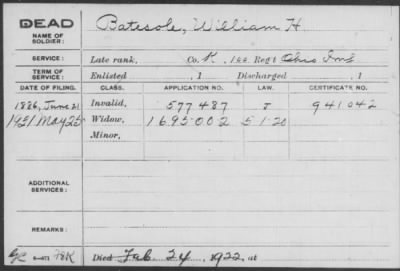 DEAD
NAME OF SOLDIER:
Batesole, William H.
SERVICE: Late rank, Co. K, 100 Regt Ohio Inf
TERM OF SERVICE: Enlisted , 1 Discharged , 1
DATE OF FILING. CLASS. APPLICATION NO. LAW. CERTIFICATE NO.
1886, June 21 Invalid, 577487 J 941042
1921 May 25 Widow, 1695002 5-1-20
Minor,
ADDITIONAL SERVICES:
REMARKS:
6-473 78K Died Feb. 24, 1922, at